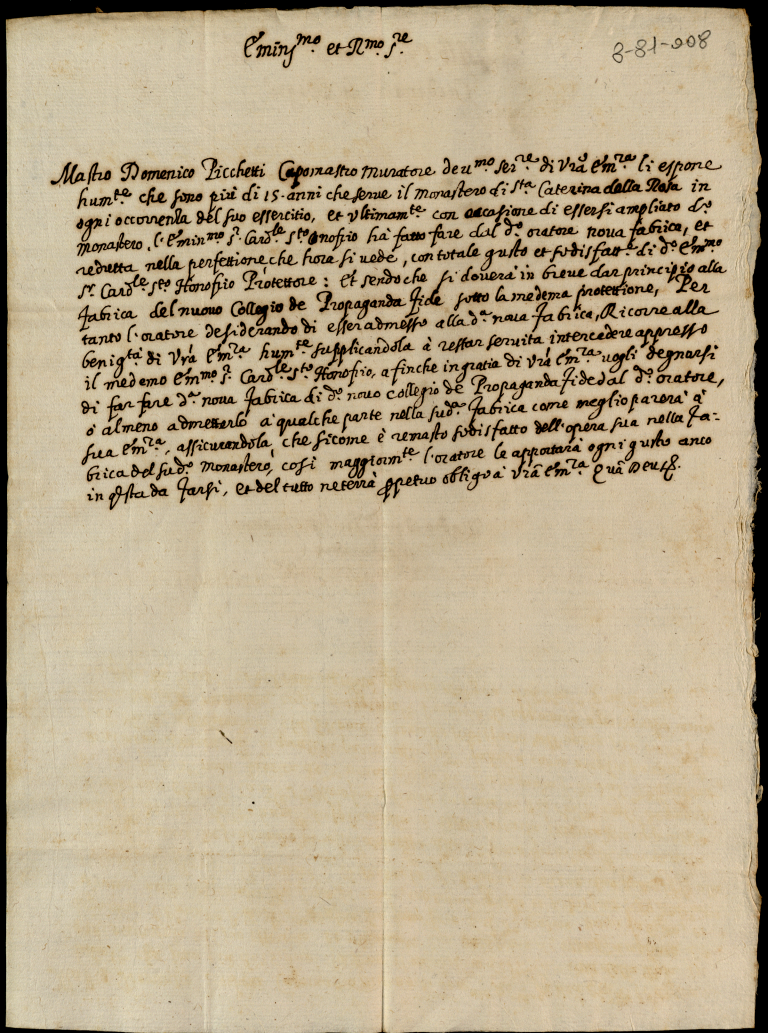 Emins.mo et R.mo S.re
3-81-908
Mastro Domenico Picchetti Capomastro Muratore deu.mo ser.re di Vrã Em.ra li espone
hum.te che sono più di 15. anni che serue il Monastero di S.ta Caterina della Rosa in
ogni occorrenza del suo essercitio, et Vltimam.te con occasione di essersi ampliato d.o
Monastero, l'Emin.mo S.r Card.le S.to Onofrio hà fatto fare dal d.o oratore noua fabrica, et
redutta nella perfettione che hora si uede, con totale gusto et sodisfatt.e di d.o Em.mo
S.r Card.le S.to Honofrio Protettore: Et sendo che si douerà in breue dar principio alla
fabrica del nuouo Collegio de Propaganda fide sotto la medema protettione, Per
tanto l'oratore desiderando di esser admesso alla d.a noua fabrica, Ricorre alla
benig.tà di Vrã Em.ra hum.te supplicandola à restar seruita intercedere appresso
il medemo Em.mo S.r Card.le S.to Honofrio, a finche in gratia di Vrã Em.ra uogli degnarsi
di far fare d.a noua fabrica di d.o nouo collegio de Propaganda fide dal d.o oratore,
ò almeno admetterlo à qualche parte nella sud.a fabrica come meglio parerà à
sua Em.ra, assicurandola che sicome è remasto sodisfatto dell'opera sua nella fa-
brica del sud.o Monastero, cosi maggiorm.te l'oratore le apportarà ogni gusto anco
in q̃sta da farsi, et del tutto ne terrà ꝑpetuo obligo à Vrã Em.ra Quã Deus &.